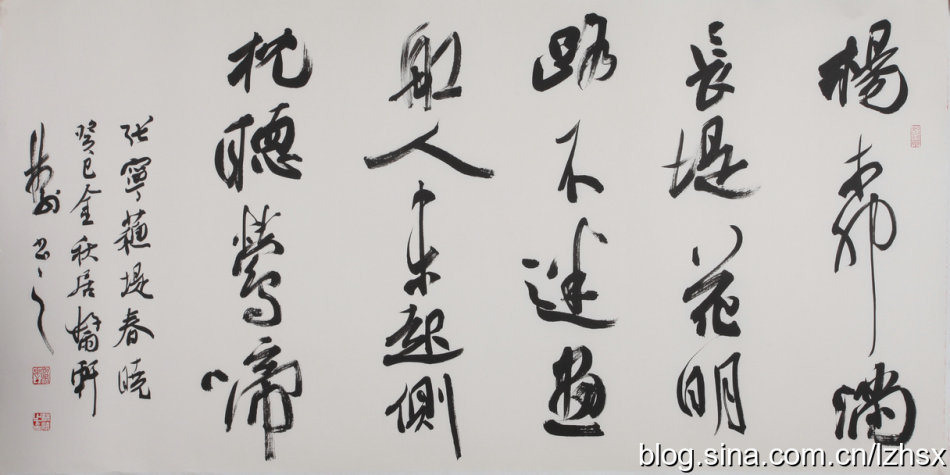 楊柳滿
長堤花明
路不迷畫
船人未起側
枕聽鶯啼
張寧蘇堤春曉
癸巳金秋居軒
书之
blog.sina.com.cn/lzhsx